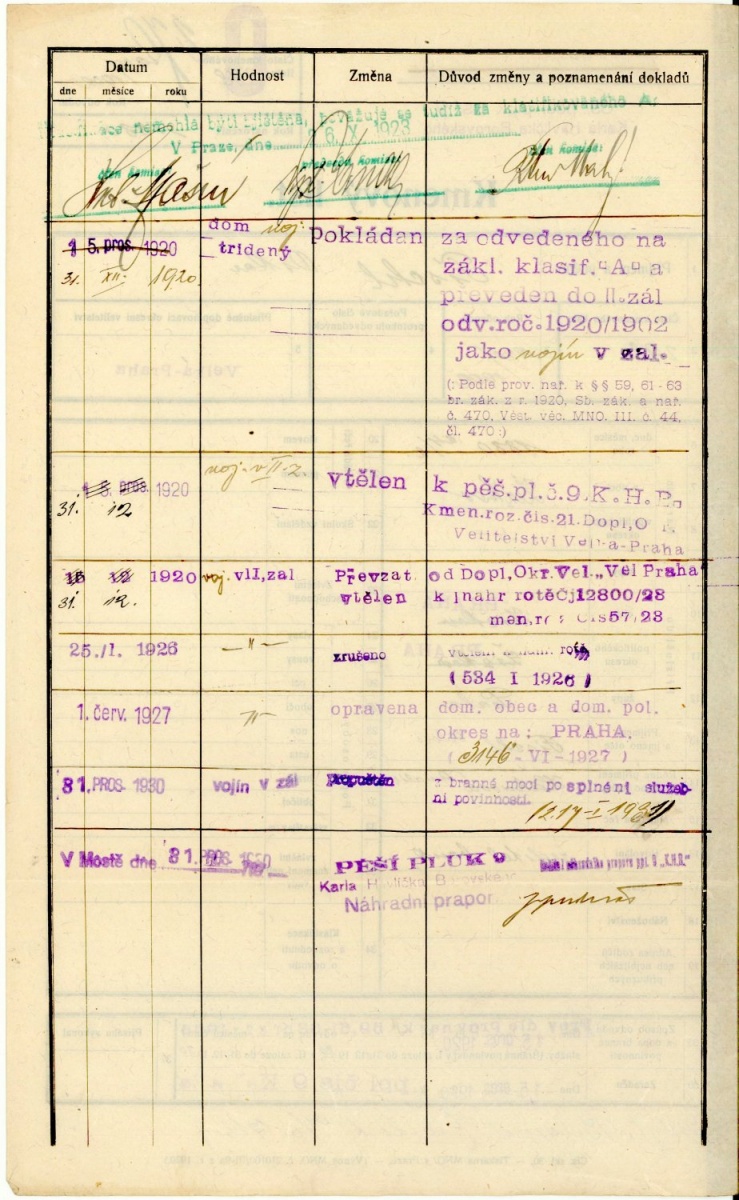 Datum Hodnost Změna Důvod změny a poznamenání dokladů
dne měsíce roku
nemohla býti zjištěna, považuje se tudíž za klasifikovaného A.
V Praze, dne 6. X 1923
člen komise: předseda komise: člen komise:
5. pros. 1920
31. XII. 1920.
dom voj.
tridený
pokládan
za odvedeného na
zákl. klasif. "A" a
preveden do II. zál
odv. roč. 1920/1902
jako vojín v zal.
(: Podle prov. nař. k §§ 59, 61-63
br. zák. z r. 1920, Sb. zák. a nař.
č. 470, Věst. věc. MNO. III. č. 44,
čl. 470 :)
pros. 1920
31. 12
voj. v II. z.
vtělen
k pěš. pl. č. 9. K. H. B.
Kmen. roz. čis. 21. Dopl. O
Velitelství Velká-Praha
1920
31. 12.
voj. v II. zal
Převzat
vtělen
od Dopl. Okr. Vel. „Vel Praha"
k náhr rotě Čj 12800/23
men. ro čis 57/23
25. /I. 1926
—"—
zrušeno
vtělení k náhr. rotě
(534 I 1926)
1. červ. 1927
—"—
opravena
dom. obec a dom. pol.
okres na: PRAHA.
(3146 - VI - 1927)
31. PROS. 1930
vojín v zál
propuštěn
z branné moci po splnění služeb-
ní povinnosti.
12.17 - I 1931
V Mostě dne 31. PROS. 1930
PĚŠÍ PLUK 9
Karla Havlíčka Borovského
Náhradní prapor
Velitel náhradního praporu ppl. 9 „K.H.B."